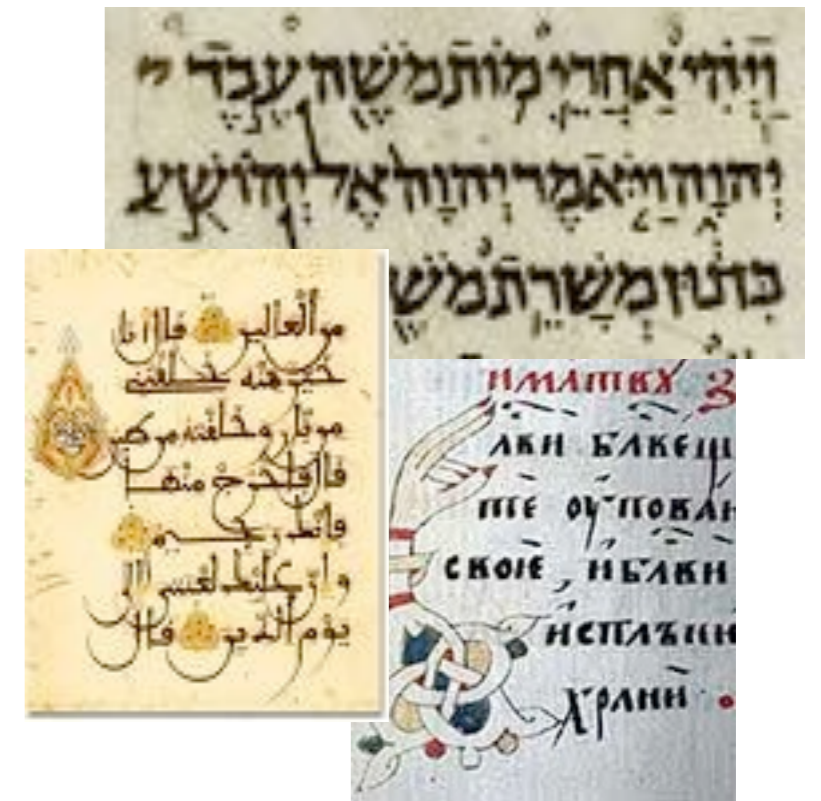 וַיְהִי אַחֲרֵי מוֹת מֹשֶׁה עֶבֶד
יְהוָה וַיֹּאמֶר יְהוָה אֶל יְהוֹשֻׁעַ
בִּן נוּן מְשָׁרֵת מֹשֶׁ
من العالين قال أنا
خير منه خلقتني
من نار وخلقته من طين
قال فاخرج منها
فإنك رجيم
وإن عليك لعنتي إلى
يوم الدين قال
те оупован
своѥ , и блви
исплъни
храни